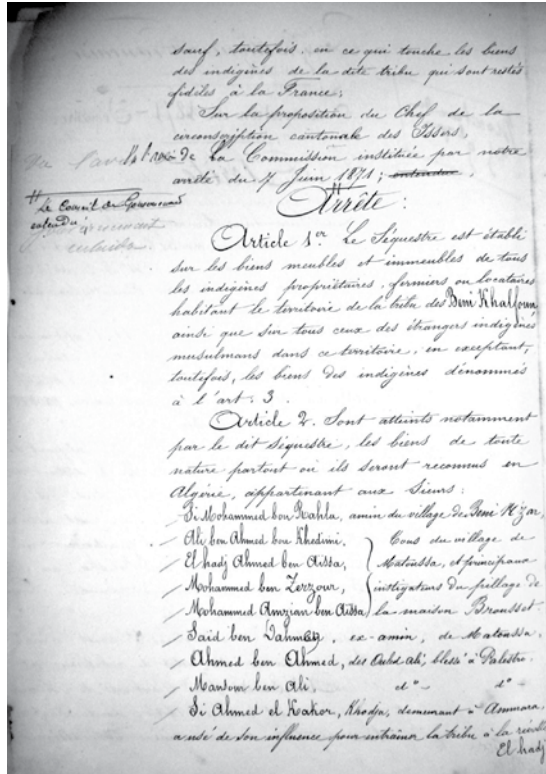 sauf, toutefois, en ce qui touche les biens
des indigènes de la dite tribu qui sont restés
fidèles à la France;
Sur la proposition du Chef de la
circonscription cantonale des Issers,
de la Commission instituée par notre
arrêté du 7 Juin 1871; entendue.
Le Conseil de Gouvernement
entendu
Arrête:
Article 1er Le Séquestre est établi
sur les biens meubles et immeubles de tous
les indigènes propriétaires, fermiers ou locataires
habitant le territoire de la tribu des Beni Khalfoun
ainsi que sur tous ceux des étrangers indigènes
musulmans dans ce territoire, en exceptant,
toutefois, les biens des indigènes dénommés
à l'art. 3.
Article 2. Sont atteints notamment
par le dit séquestre, les biens de toute
nature partout où ils seront reconnus en
Algérie, appartenant aux Sieurs:
Si Mohammed ben Rahla, amin du village de Beni
Ali ben Ahmed ben Khedimi,
El hadj Ahmed ben Aissa,
Mohammed ben Zerzour,
Mohammed Amzian ben Aissa
Tous du village de
Matoussa, et principaux
instigateurs du pillage de
la maison Brousset.
Said ben, ex-amin, de Matoussa.
Ahmed ben Ahmed, des Ouled Ali, blessé à Palestro.
Mansour ben Ali, do do
Si Ahmed el Kakor, Khodja, demeurant à Ammara,
a usé de son influence pour entraîner la tribu à la révolte
El hadj